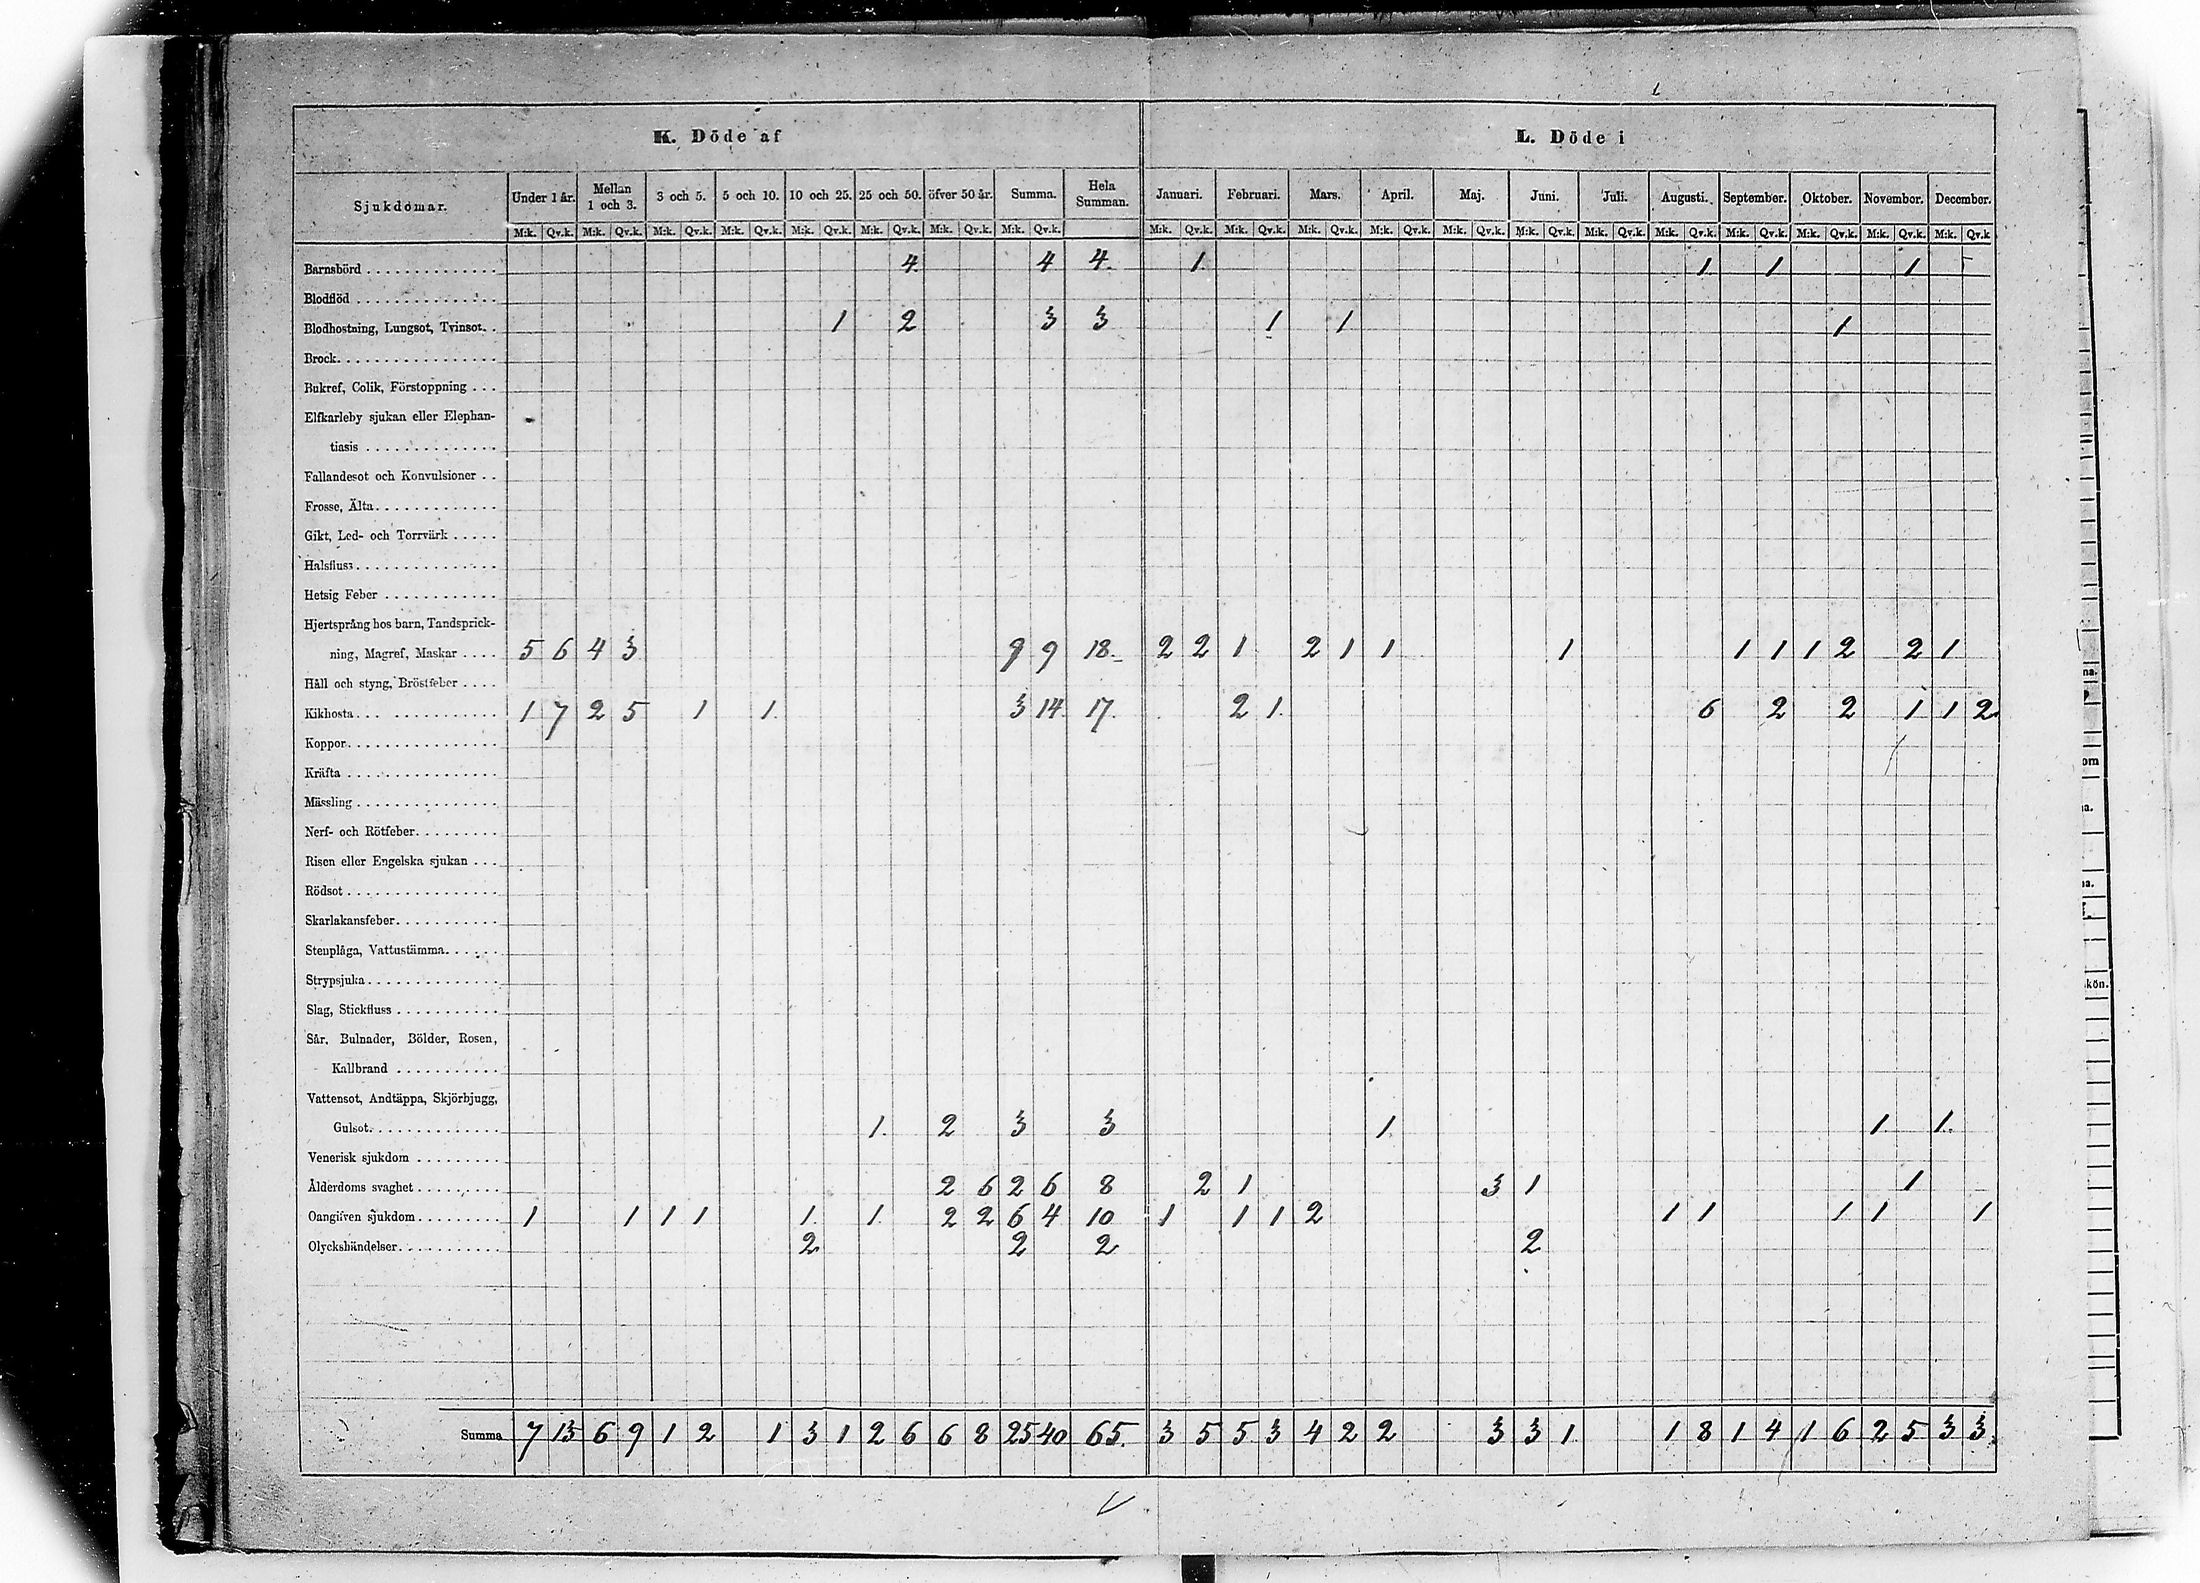 K. Döde af L. Döde i
Sjukdomar. Under 1 år. Mellan 1 och 3. 3 och 5. 5 och 10. 10 och 25. 25 och 50. öfver 50 år. Summa. Hela Summan. Januari. Februari. Mars. April. Maj. Juni. Juli. Augusti. September. Oktober. November. December.
M:k. Qv.k. M:k. Qv.k. M:k. Qv.k. M:k. Qv.k. M:k. Qv.k. M:k. Qv.k. M:k. Qv.k. M:k. Qv.k. M:k. Qv.k. M:k. Qv.k. M:k. Qv.k. M:k. Qv.k. M:k. Qv.k. M:k. Qv.k. M:k. Qv.k. M:k. Qv.k. M:k. Qv.k. M:k. Qv.k. M:k. Qv.k. M:k. Qv.k
Barnsbörd 4. 4 4. 1. 1. 1 1
Blodflöd
Blodhostning, Lungsot, Tvinsot. 1 2 3 3 1 1 1
Brock
Bukref, Colik, Förstoppning
Elfkarleby sjukan eller Elephan-
tiasis
Fallandesot och Konvulsioner
Frosse, Älta
Gikt, Led- och Torrvärk
Halsfluss
Hetsig Feber
Hjertsprång hos barn, Tandsprick-
ning, Magref, Maskar 5 6 4 3 9 9 18. 2 2 1 2 1 1 1 1 1 1 2 2 1
Håll och styng, Bröstfeber
Kikhosta 1 7 2 5 1 1. 3 14 17. 2 1. 6 2 2 1 1 2
Koppor
Kräfta
Mässling
Nerf- och Rötfeber
Risen eller Engelska sjukan
Rödsot
Skarlakansfeber
Stenplåga, Vattustämma
Strypsjuka
Slag, Stickfluss
Sår. Bulnader, Bölder, Rosen,
Kallbrand
Vattensot, Andtäppa, Skjörbjugg,
Gulsot 1. 2 3 3 1. 1. 1.
Venerisk sjukdom
Ålderdoms svaghet 2 6 2 6 8 2 1 3 1 1
Oangifven sjukdom 1 1 1 1 1. 1. 2 2 6 4 10 1 1 1 2 1 1 1 1 1
Olyckshändelser 2 2 2 2
Summa 7 13 6 9 1 2 1 3 1 2 6 6 8 25 40 65. 3 5 5 3 4 2 2 3 3 1 1 8 1 4 1 6 2 5 3 3